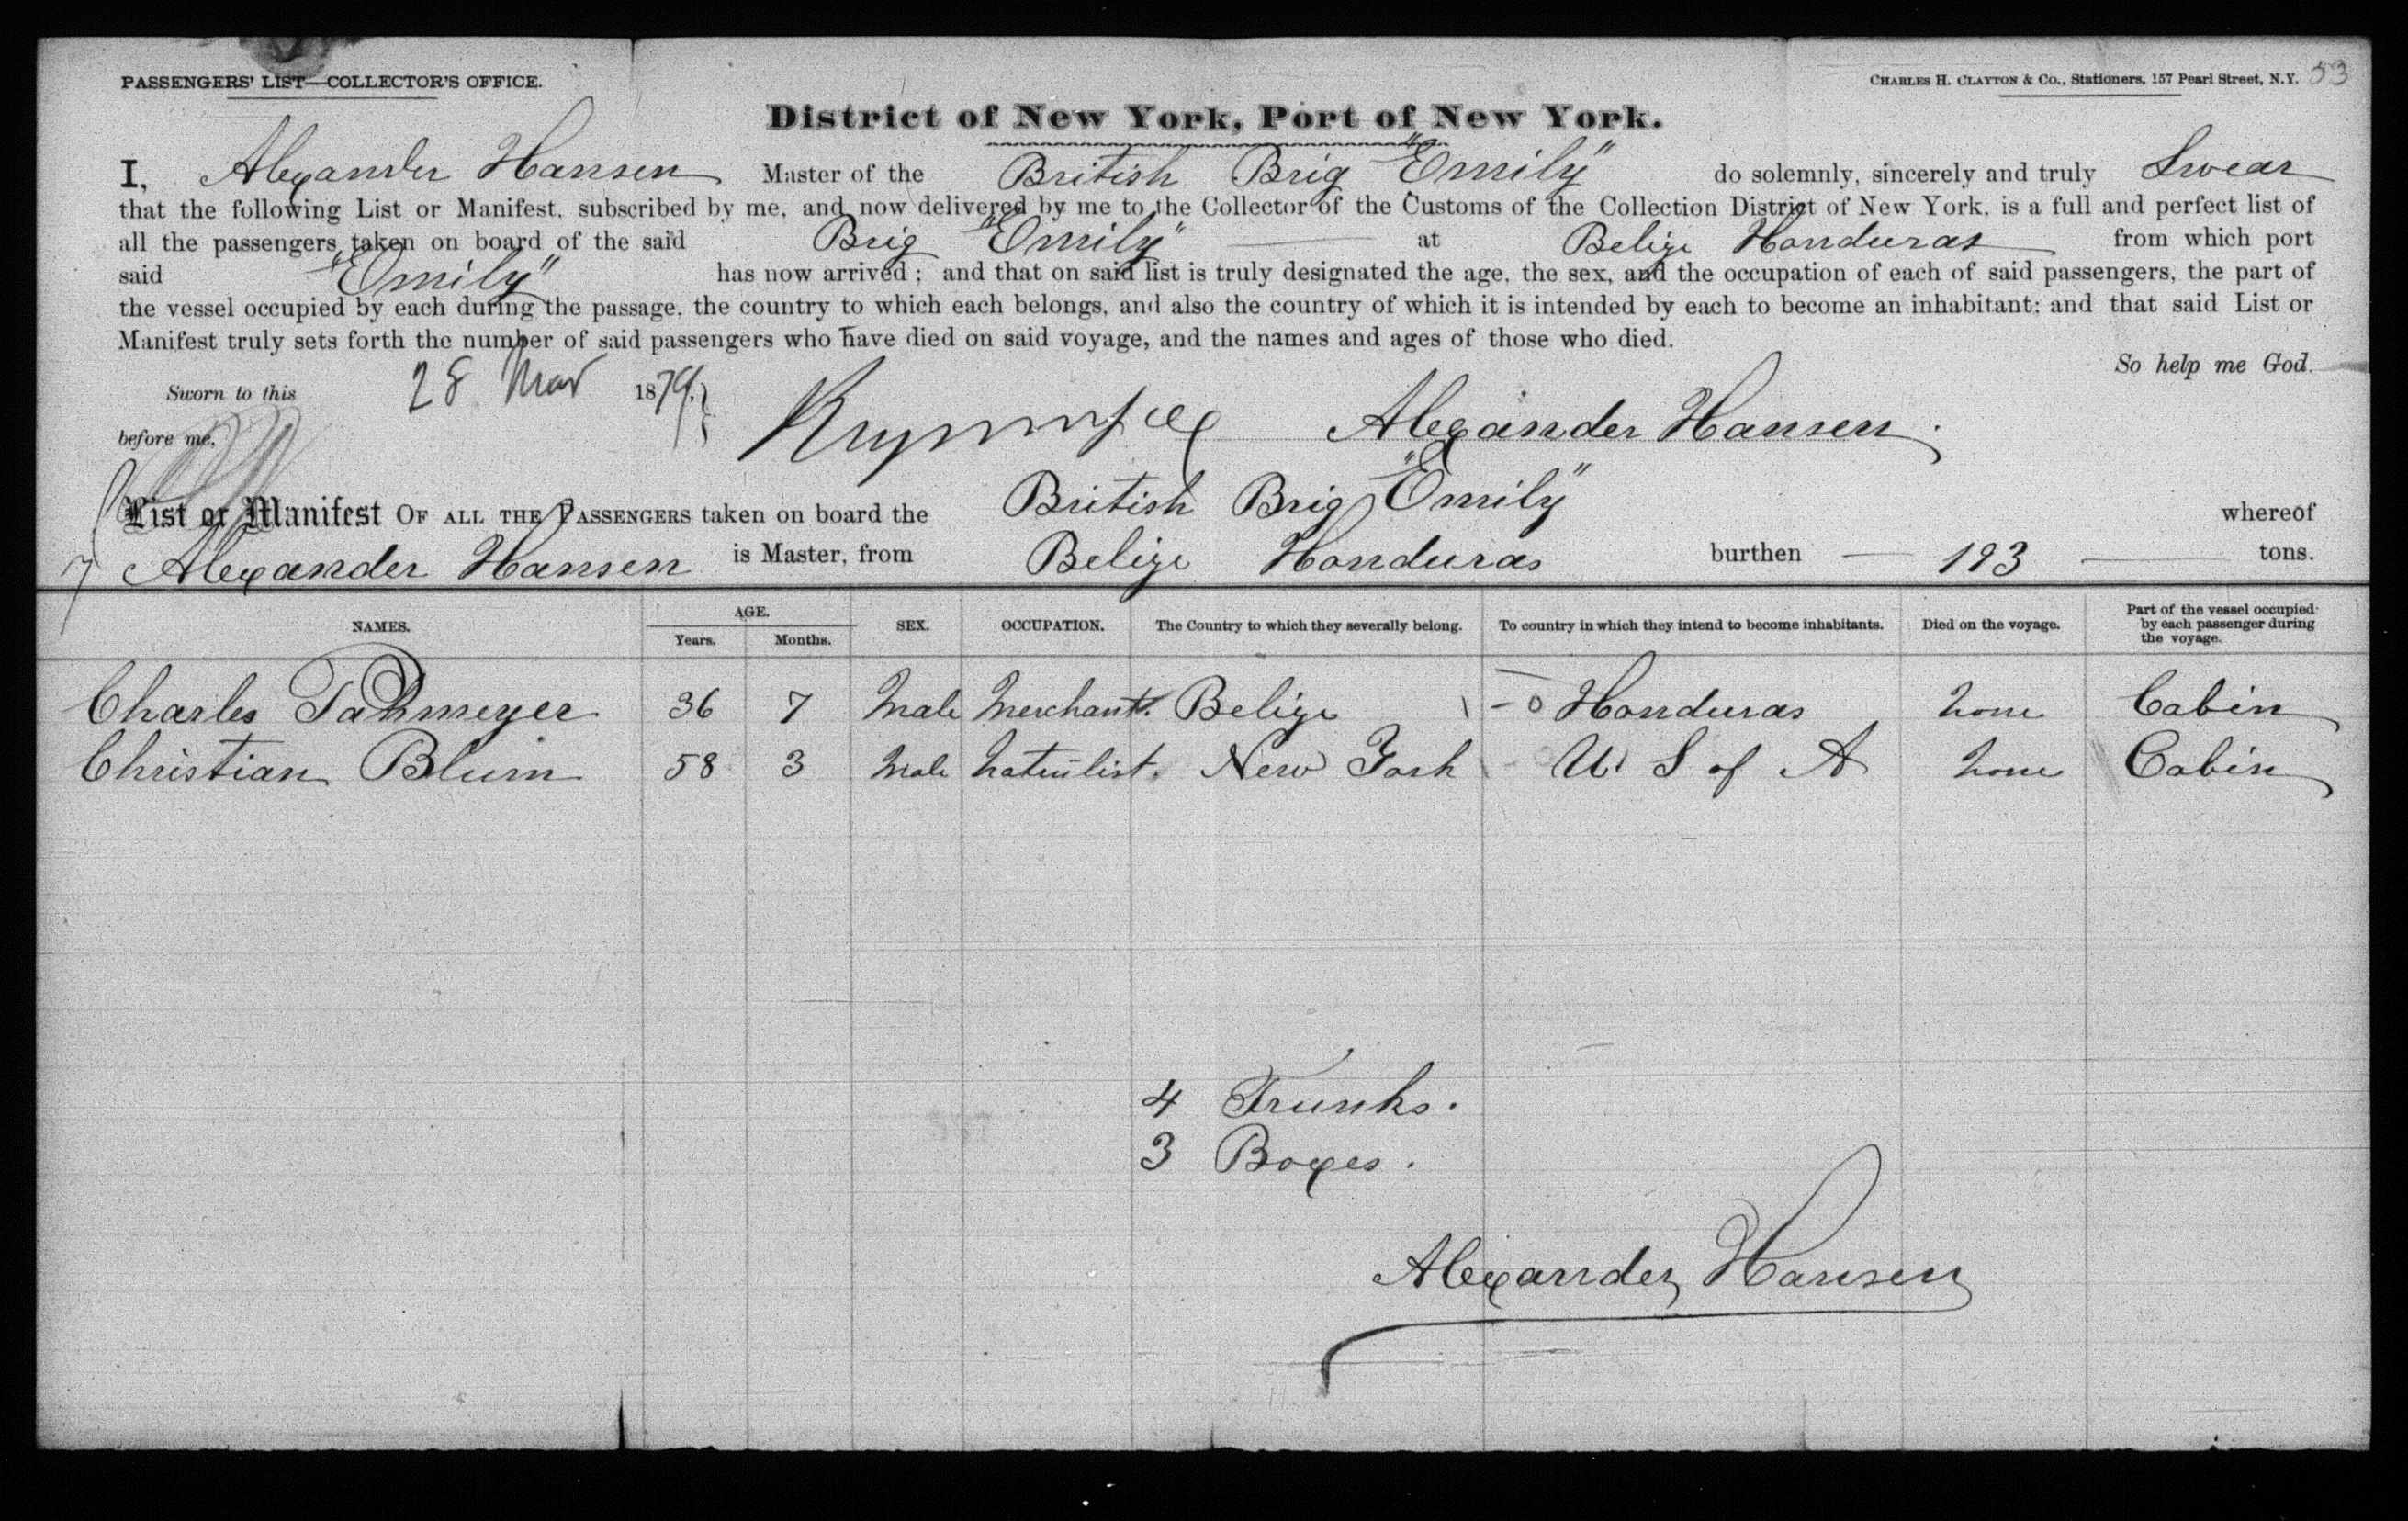 PASSENGERS' LIST—COLLECTOR'S OFFICE.
CHARLES H. CLAYTON & Co., Stationers, 157 Pearl Street, N.Y. 53
District of New York, Port of New York.
I, Alexander Hansen Master of the British Brig "Emily" do solemnly, sincerely and truly Swear
that the following List or Manifest, subscribed by me, and now delivered by me to the Collector of the Customs of the Collection District of New York, is a full and perfect list of
all the passengers taken on board of the said Brig "Emily" at Belize Honduras from which port
said "Emily" has now arrived; and that on said list is truly designated the age, the sex, and the occupation of each of said passengers, the part of
the vessel occupied by each during the passage, the country to which each belongs, and also the country of which it is intended by each to become an inhabitant; and that said List or
Manifest truly sets forth the number of said passengers who have died on said voyage, and the names and ages of those who died.
So help me God.
Sworn to this 28 Mar 1879.
before me, Alexander Hansen.
List or Manifest OF ALL THE PASSENGERS taken on board the British Brig "Emily" whereof
Alexander Hansen is Master, from Belize Honduras burthen — 193 — tons.
NAMES. AGE. Years. Months. SEX. OCCUPATION. The Country to which they severally belong. To country in which they intend to become inhabitants. Died on the voyage. Part of the vessel occupied by each passenger during the voyage.
Charles Tahmeyer 36 7 Male Merchant. Belize Honduras none Cabin
Christian Blum 58 3 Male New York U S of A none Cabin
4 Trunks.
3 Boxes.
Alexander Hansen